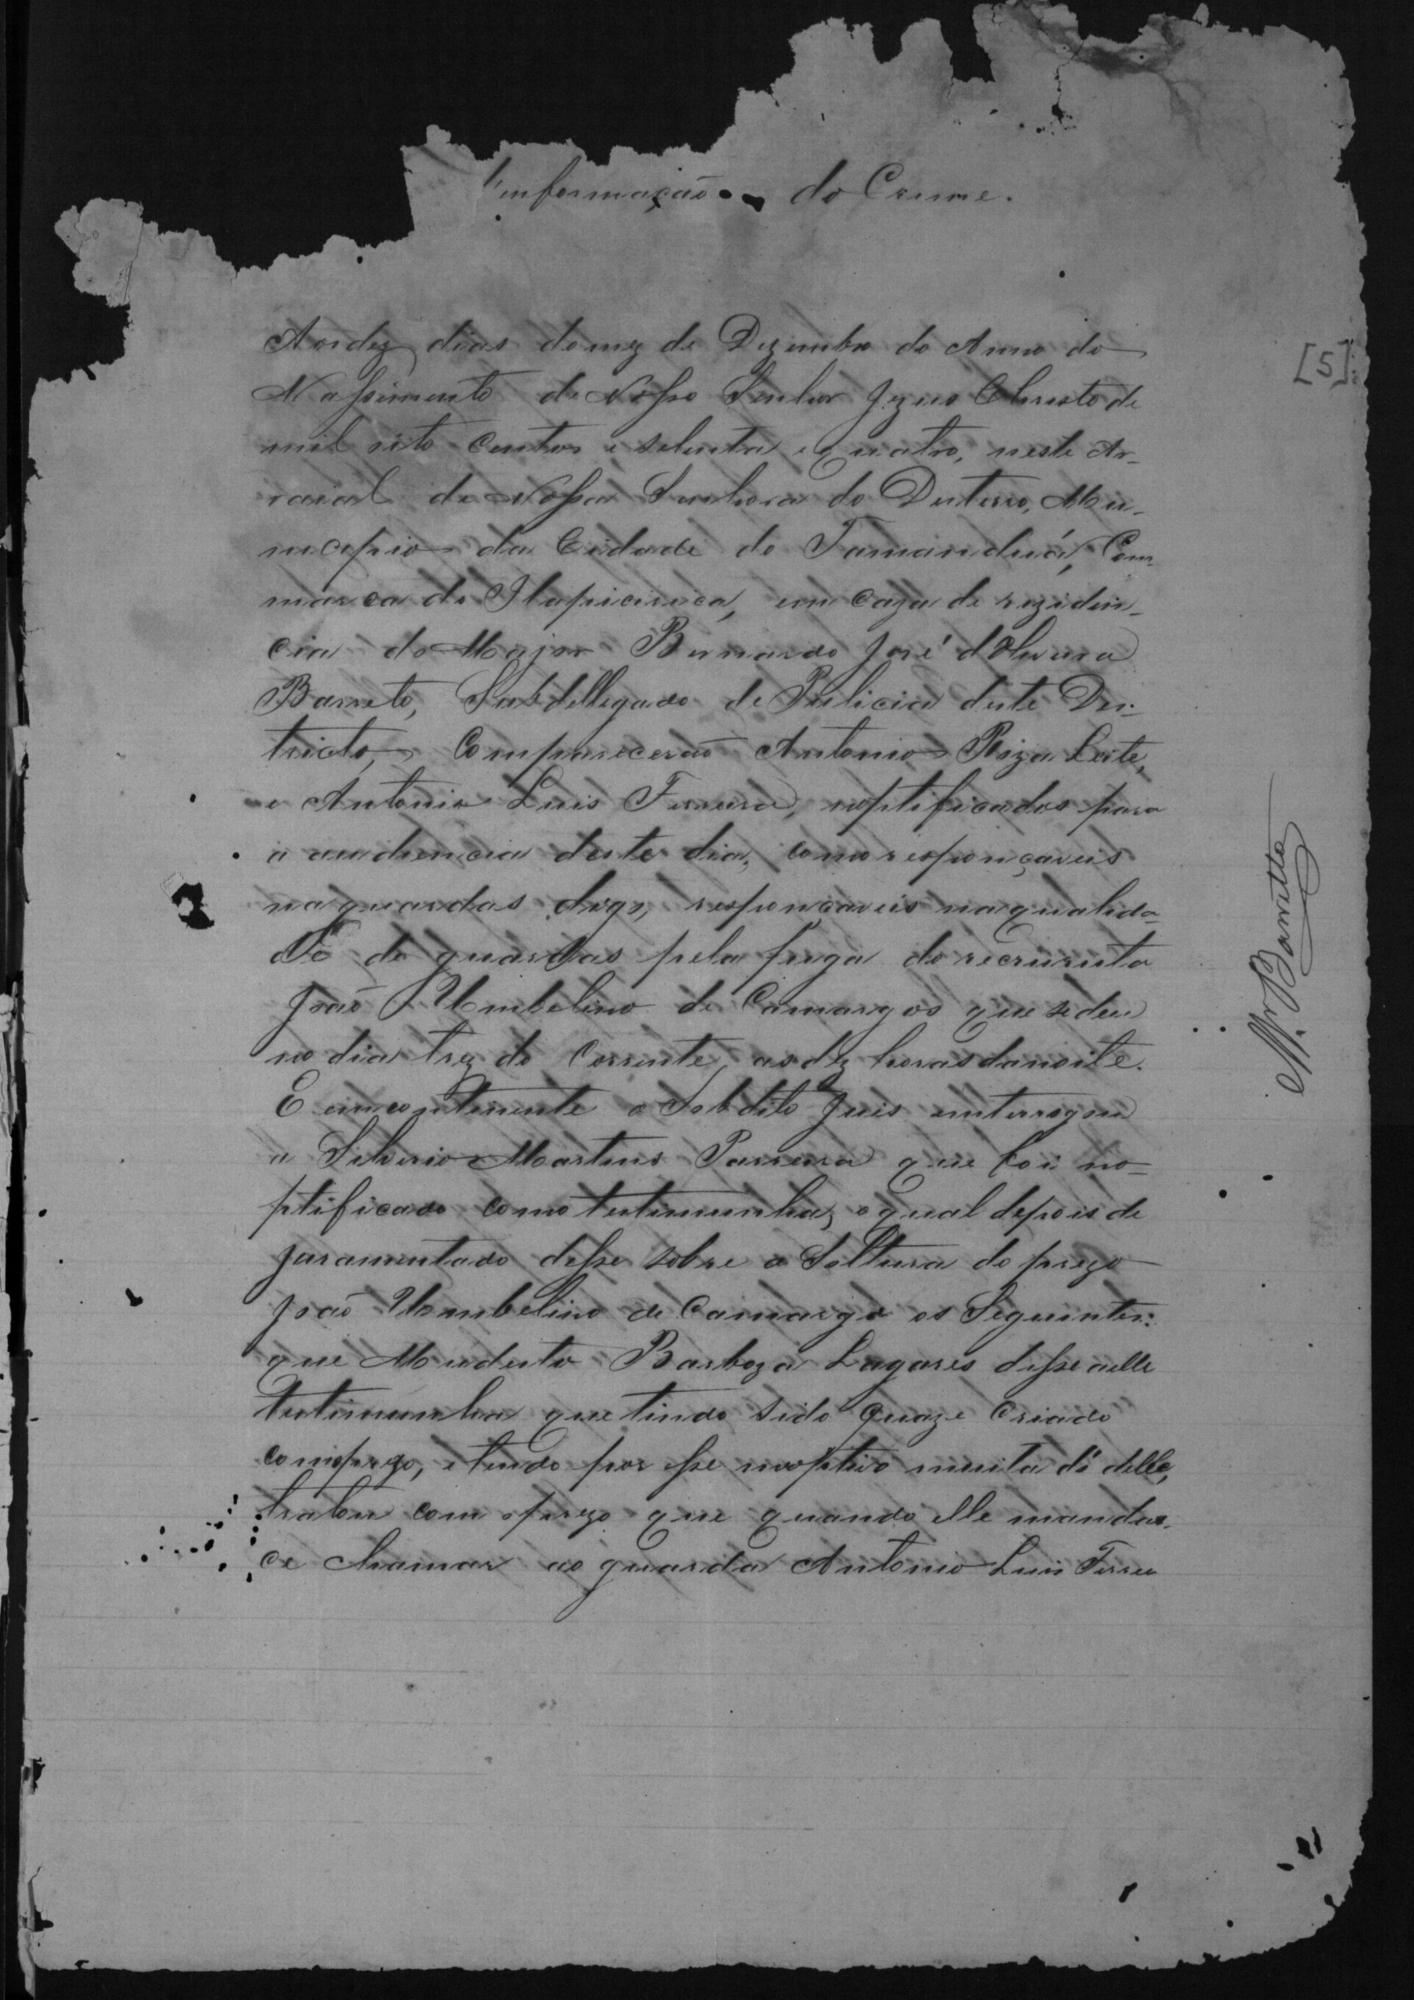 Informação do Crime.
Aos dez dias do mez de Dezembro do Anno do
Nassimento de Nosso Senhor Jezus Christo de
mil oito centos e setenta e quatro, neste Ar-
raial de Nossa Senhora do Desterro, Mu-
nicepio da Cidade do Tamanduá, Com-
marca de Itapicirica, em caza de reziden-
cia do Major Bernardo José d'Oliveira
Barreto, Subdellegado de Pulicia deste Des-
tricto, Comparecerão Antonio Roza Leite,
e Antonio Luis Ferreira, noptificados para
a audiencia deste dia, como responçaveis
na guardas digo, responçaveis na qualida-
de de guardas pela fuga do recruruta
João Umbelino de Camargos que se deu
no dia trez do Corrente, as dez horas da noite.
E em continente o Sobdito Juis enterrogou
a Silverio Martins Parreira que foi no-
ptificado como testimunha, o qual depois de
juramentado desse sobre a Soltura do prezo
João Umbelino de Camargo os Seguintes:
que Mudesto Barboza Lagares disse a elle
testimunha que tindo sido quaze criado
com o prezo, e tendo por esse moptivo muita dó delle,
tratou com o prezo que quando elle mandas-
ce chamar ao guarda Antonio Luis Ferrei
[5]
Mr Barretto